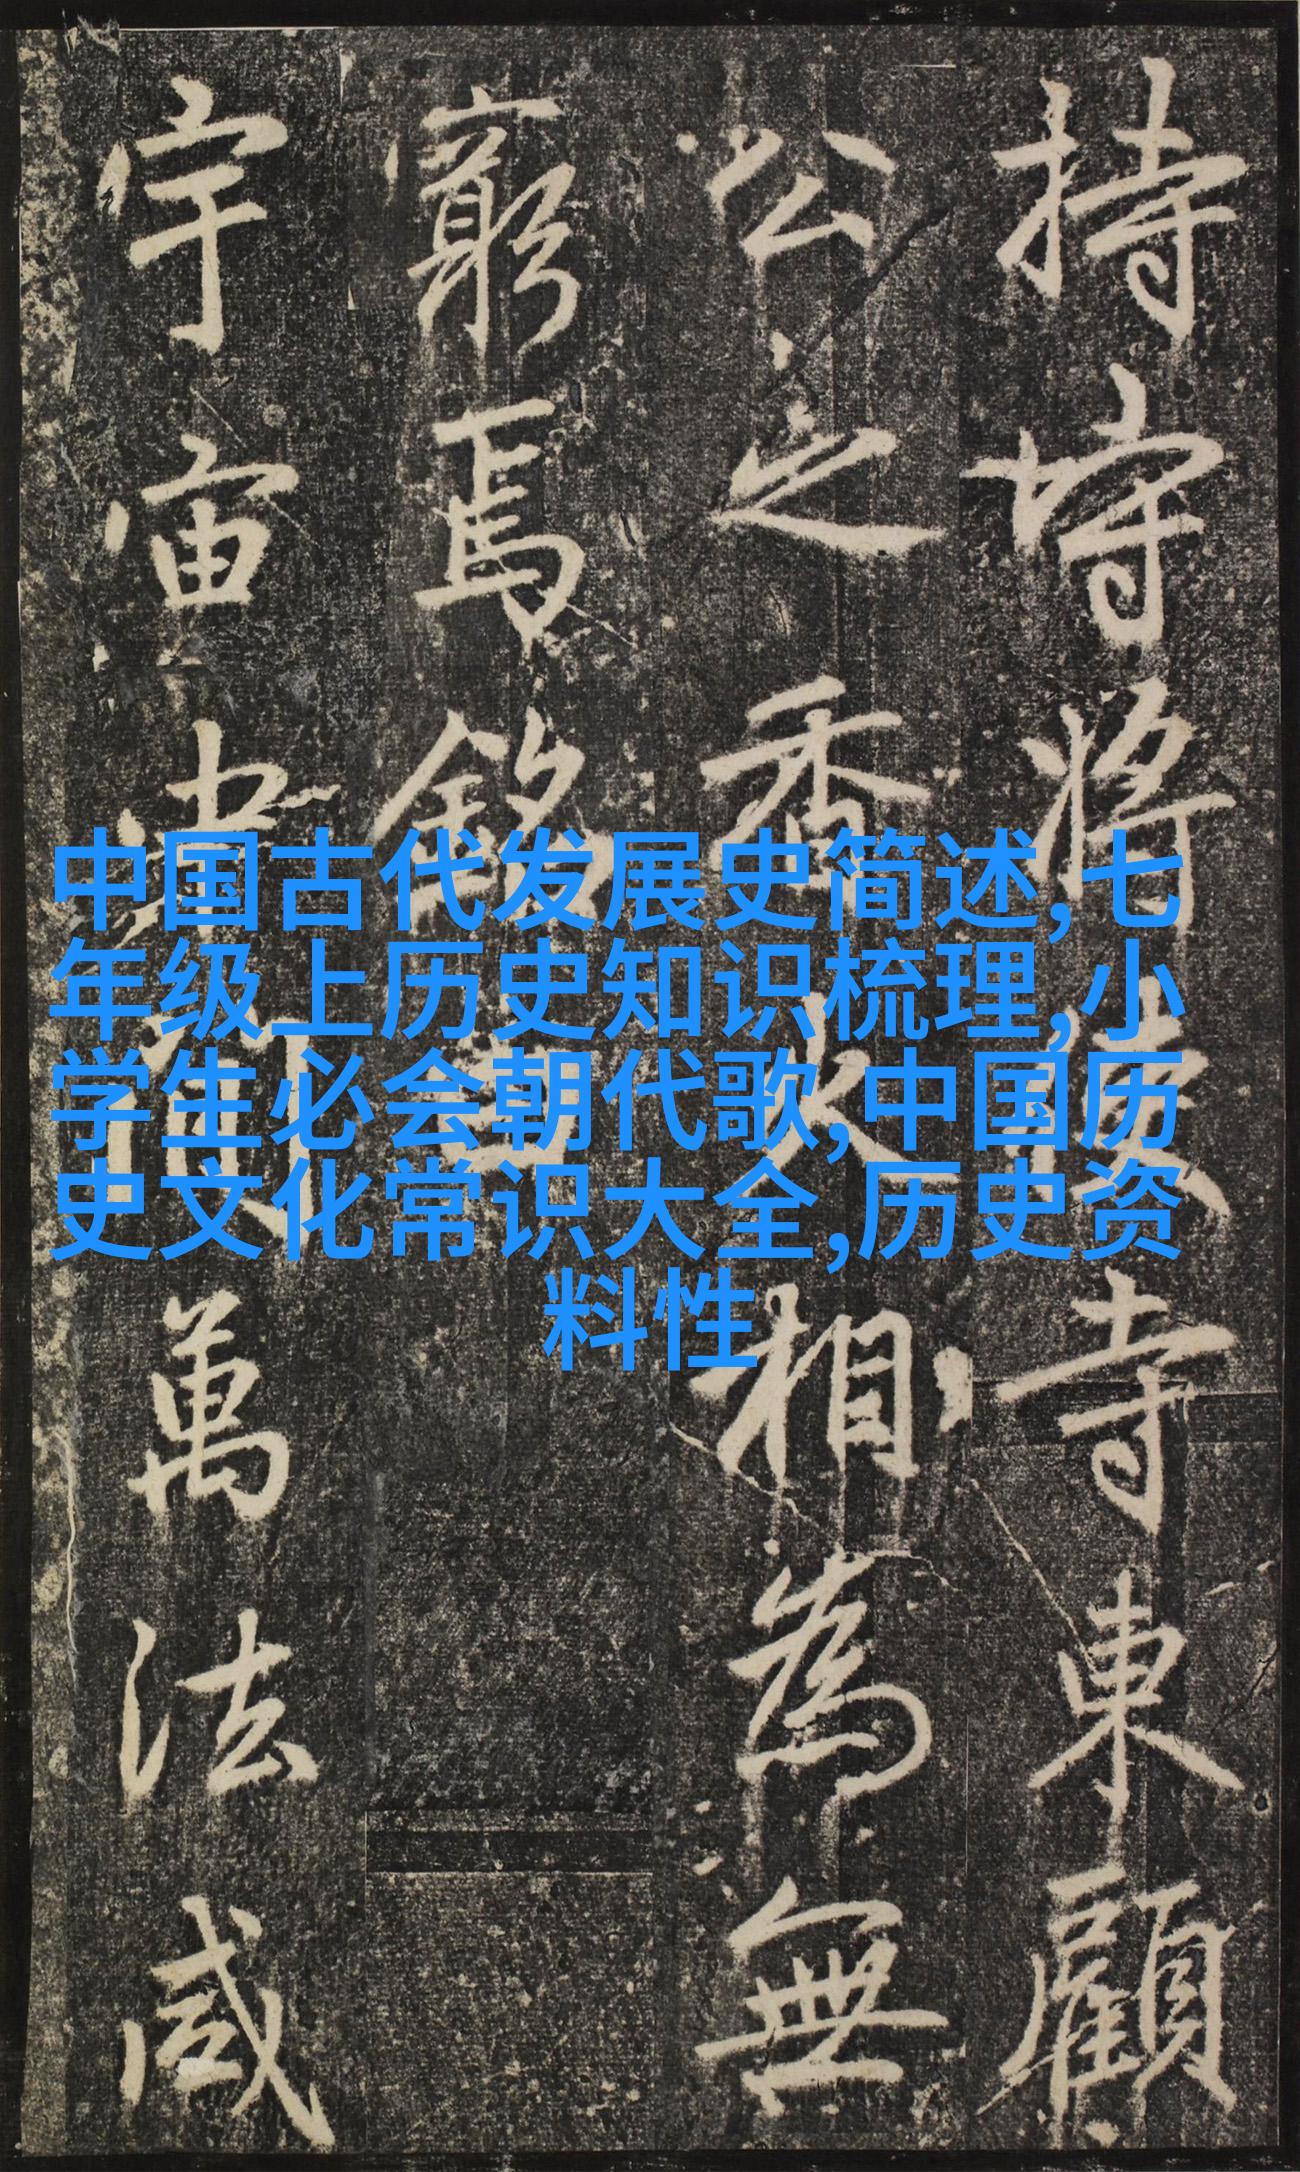 持將寺東顧
公之香火相為無
窮焉銘曰
宇宙萬法咸
中国古代发展史简述,七
年级上历史知识梳理,小
学生必会朝代歌,中国历
史文化常识大全,历史资
料性